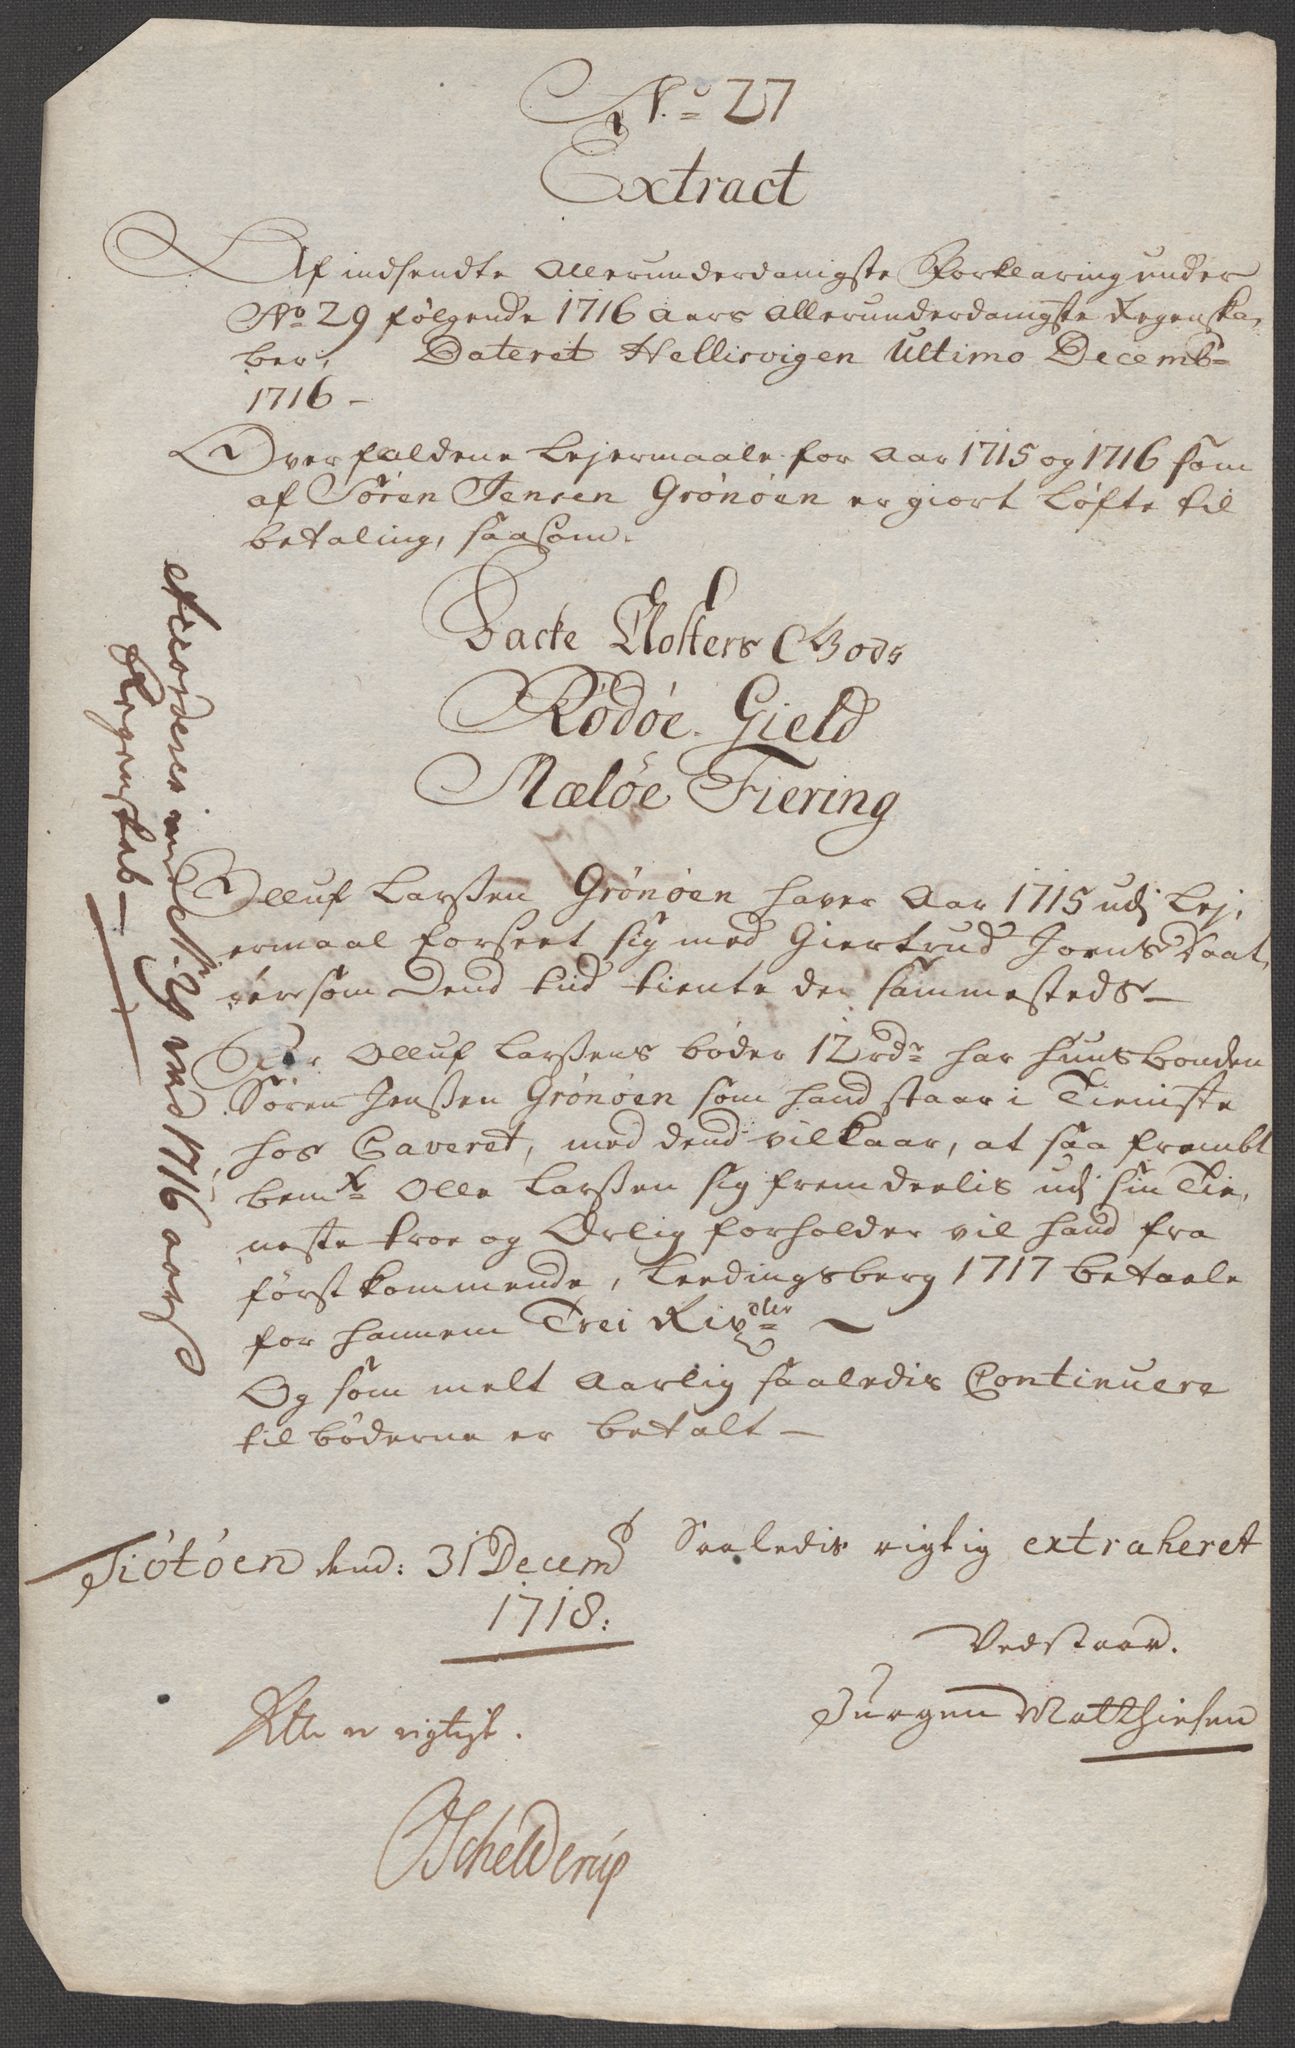 No 27
Extract
Af indsendte Allerunderdanigste Forklaring under
No 29 følgende 1716 Aars Allerunderdanigste Regenska,
ber, Dateret Hellisvigen Ultimo Decemb
1716 –
Overfaldene Lejermaale for Aar 1715 og 1716 som
af Søren Jensen Grönöen er giort Løfte til
betaling, saasom.
Backe Closters Gods
Rödöe Gield
Mæløe Fiering
Olluf Larssen Grönöen haver Aar 1715 udj Lej,
ermaal forseet sig med Giertrud Joens Daat,
som Dend tiid tiente der sammesteds –
For Olluf Larssens bøder 12 rdr har huusbonden
Søren Jenssen Grönöen som hand staar i Tieniste
hos Caveret, med dend vilkaar, at saa frembt
bemte Olle Larssen sig fremdeelis udj sin Tie,
neste troe og Ærlig forholder vil hand fra
först kommende, Leedingsberg 1717 betaele
for hannem Trei Rixdler
Og som melt Aarlig saaledis Continuere
til bøderne er betalt –
Saaledis rigtig extraheret
Tiötöen dend: 31 Decemb
1718:
Vedstaar.
Jurgen Matthiesen
Att er rigtigt.
Schelderup
Accorderer med No. 29 ved 1716 aars
Regenskab –